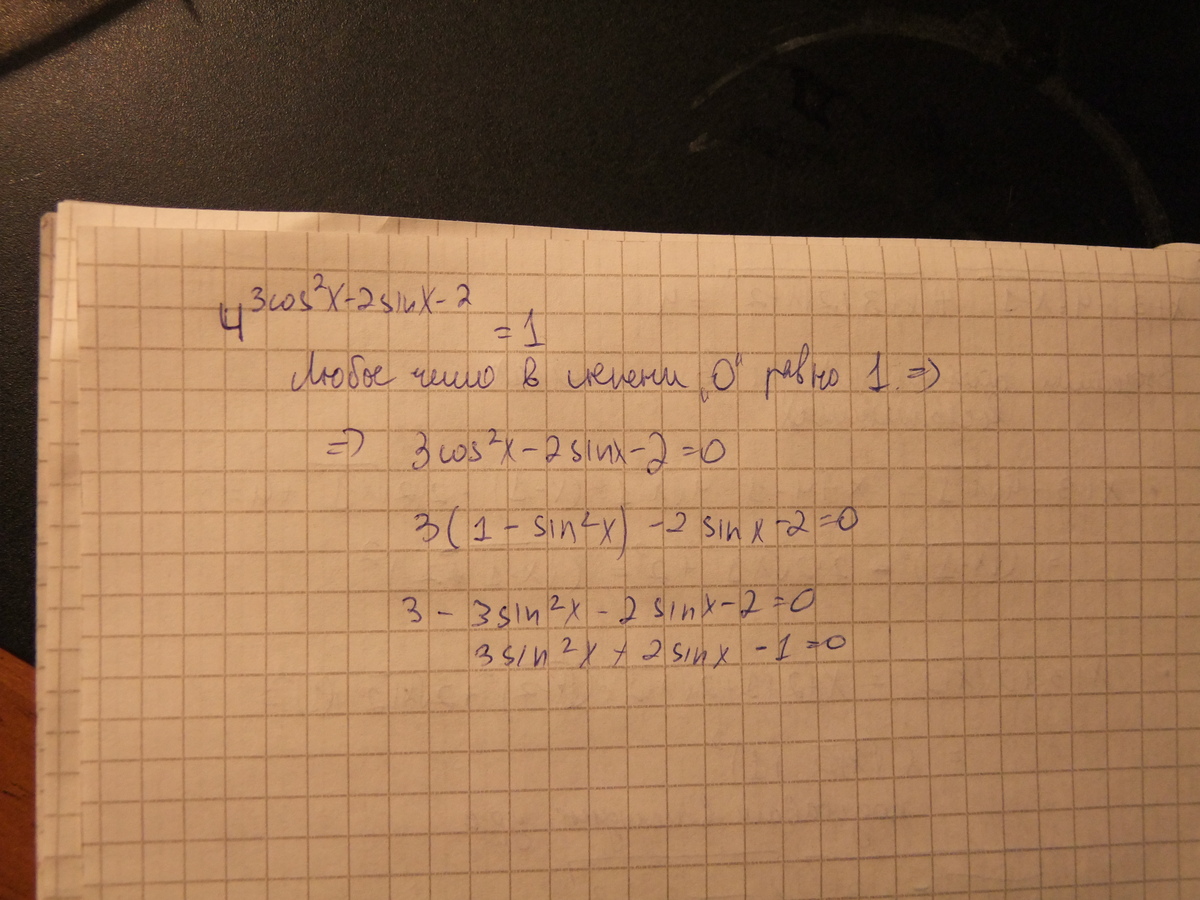 4^{3cos²x-2sinx-2} = 1
Любое число в степени „0“ равно 1. =>
=> 3cos²x-2sinx-2=0
3(1-sin²x) -2sinx-2=0
3-3sin²x-2sinx-2=0
3sin²x+2sinx-1=0